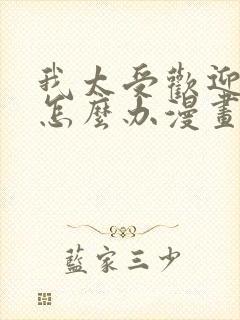 我太受歡迎
怎麼办漫畫
藍家三少